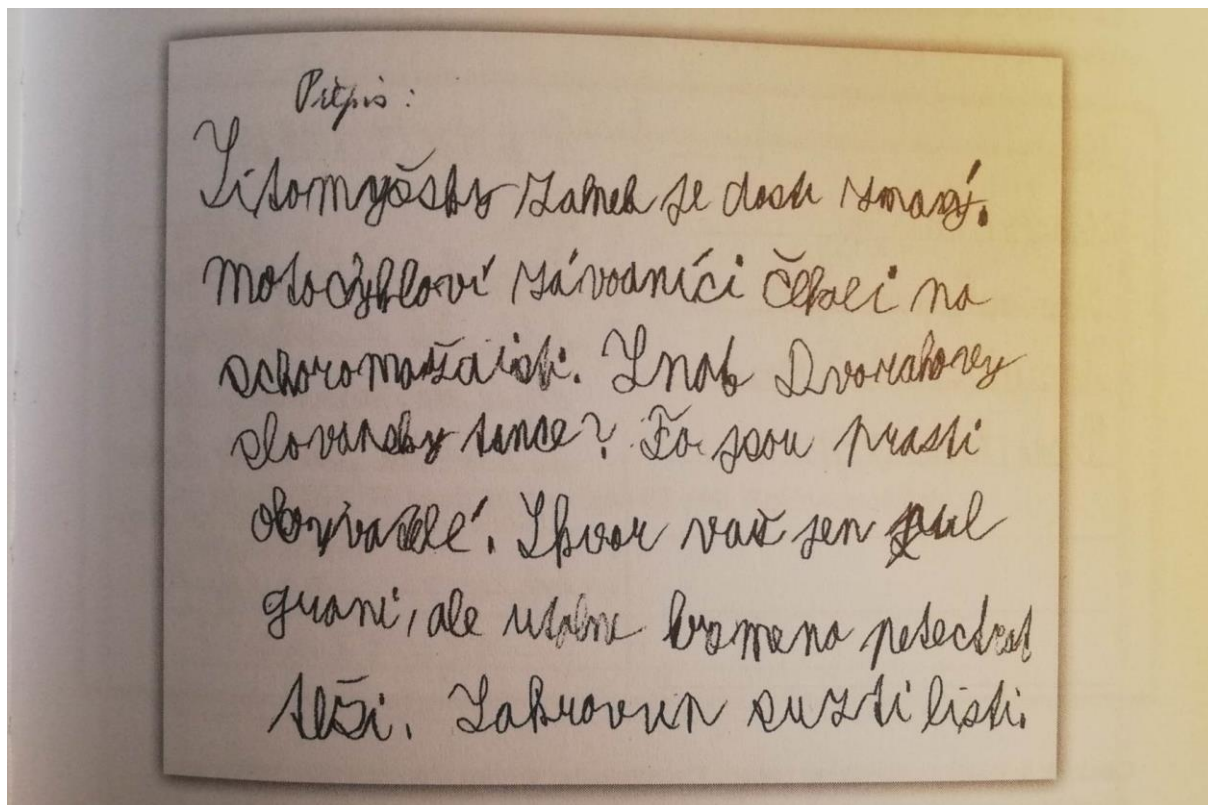 Přepis:
Litomyšsky zamek je dosti znaný.
motocykloví závodníci čekali na
schoromaždisti. Znáš Dvorakovy
slovansky tance? To jsou prasti
obyvatelé. Skvor važi jen pul
grami, ale utahne bremena petectrat
těži. Zakrovun suzti listi.